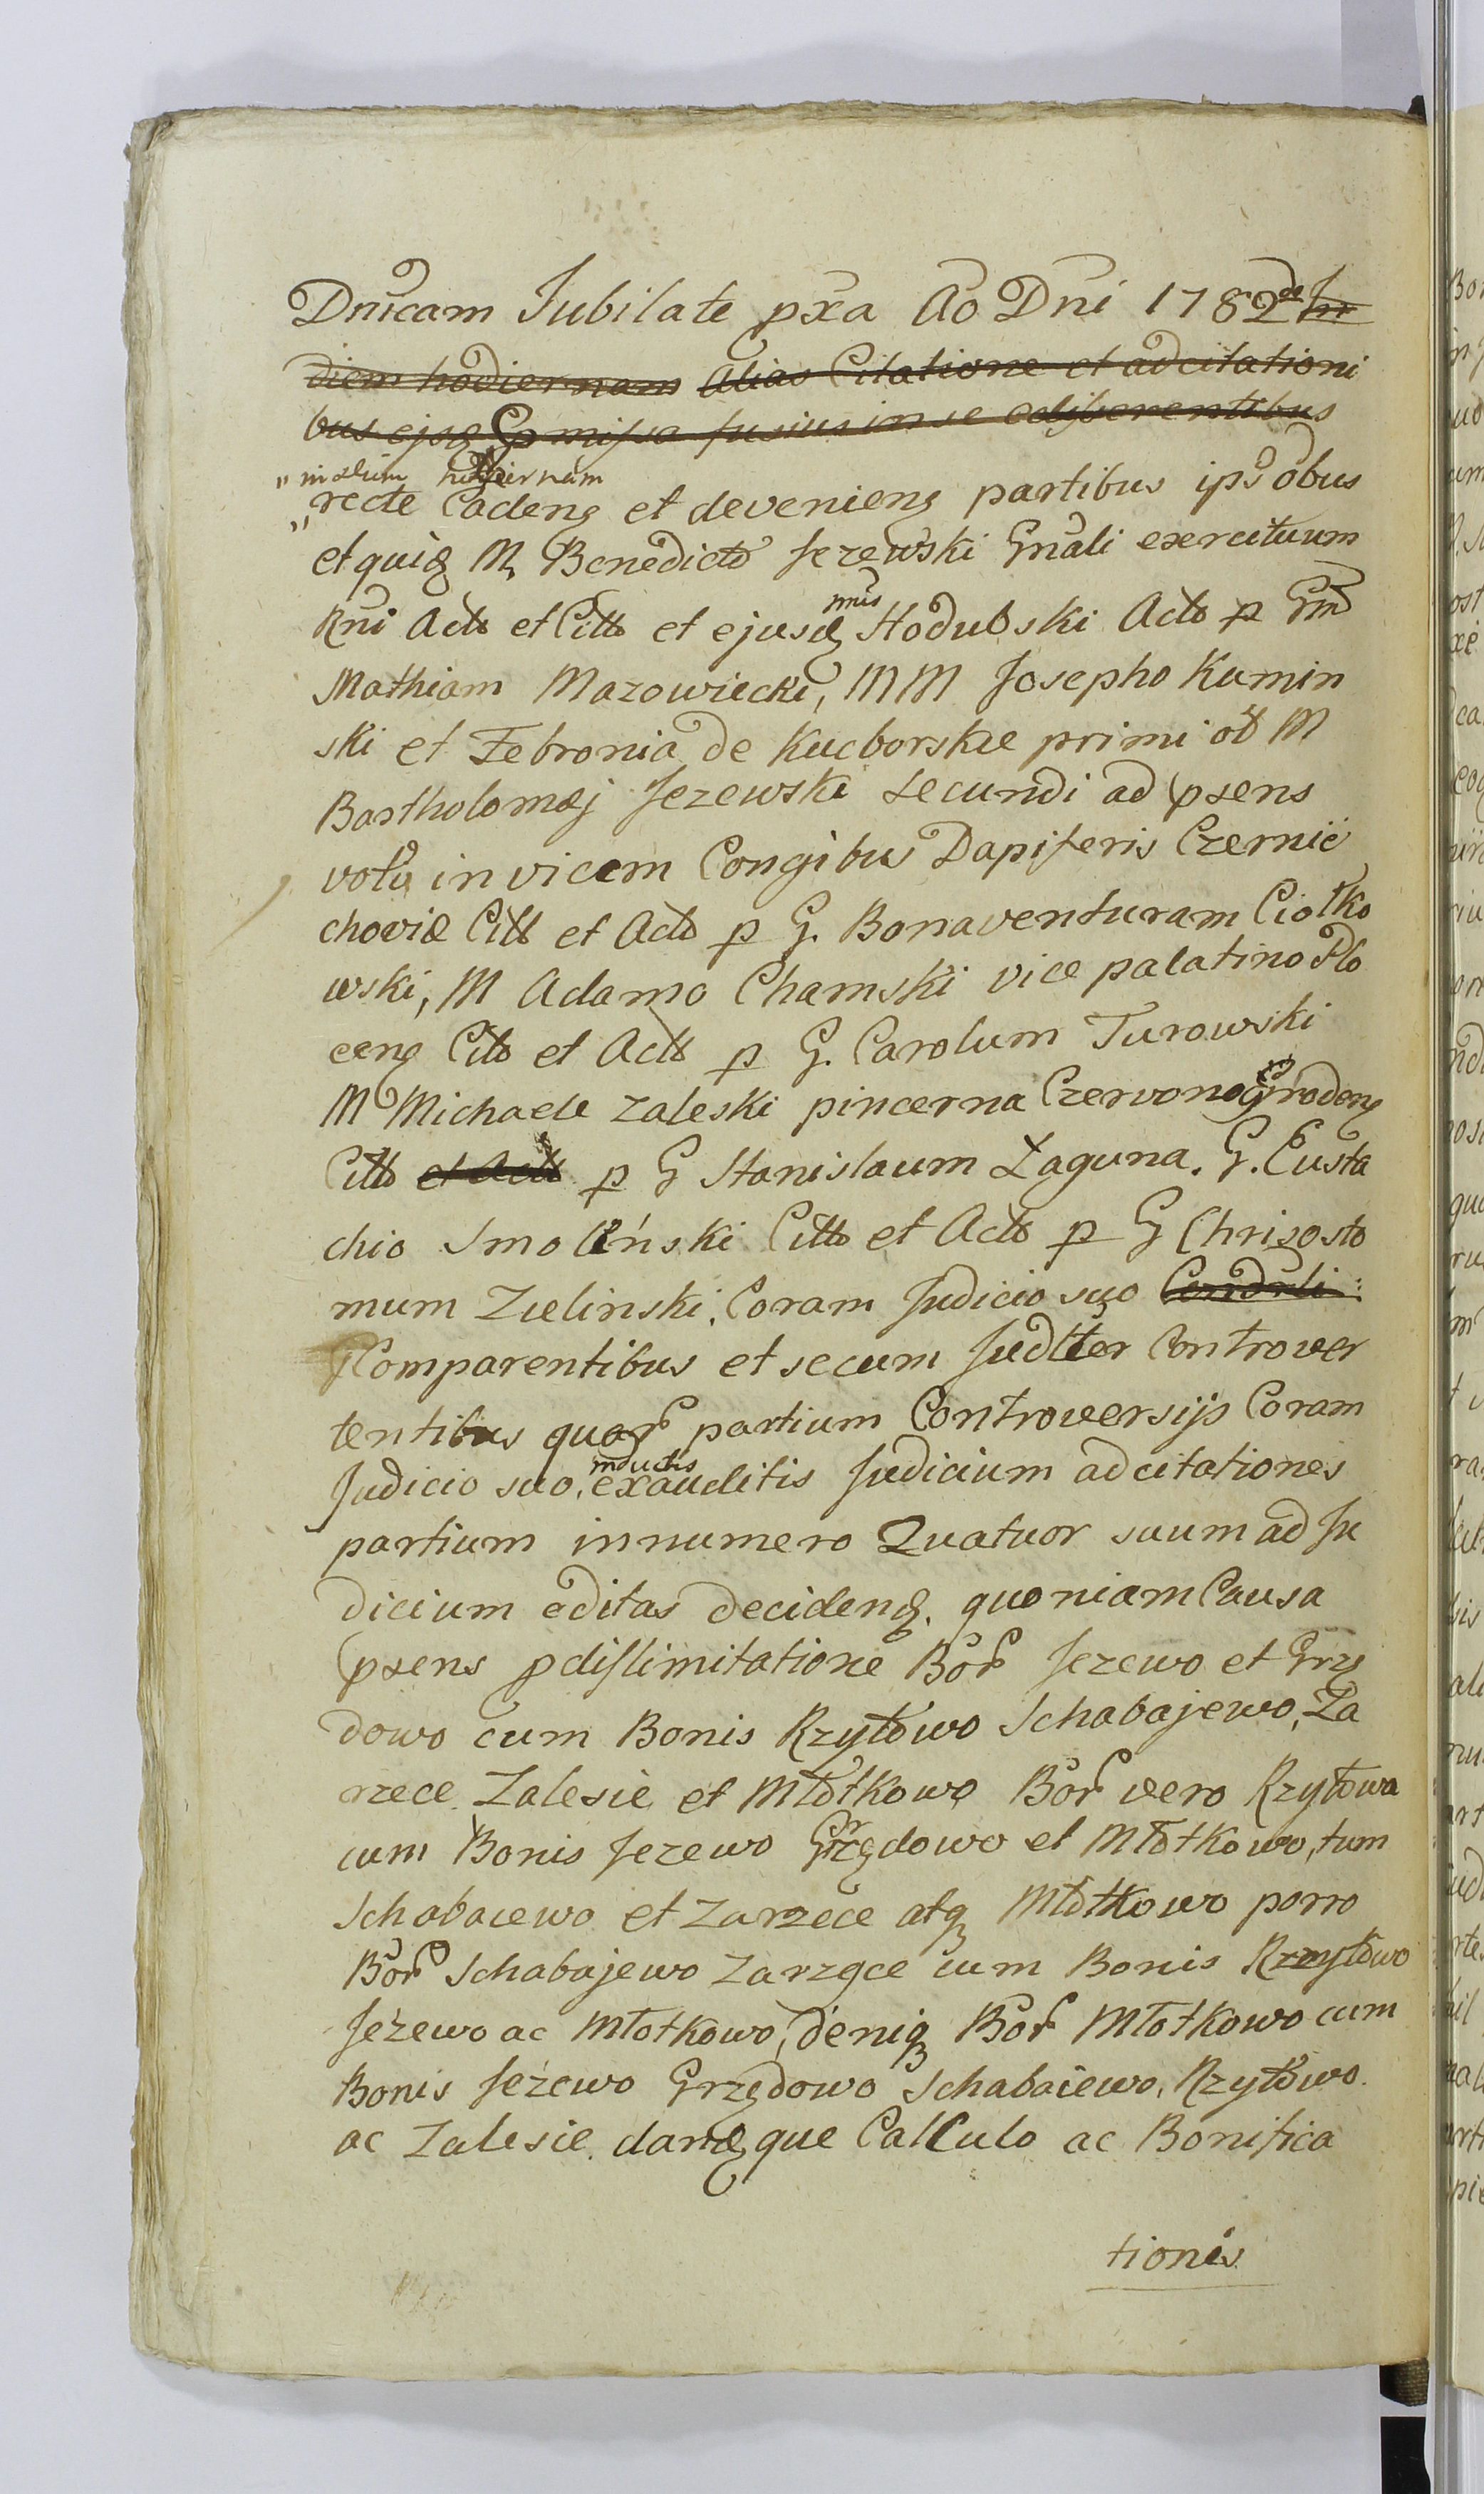 Dnicam Jubilate pxa Ao Dni 1782de In
diem hodiernam Alias Citatione et adcitationi
bus ejsq missa fusius in se
in diem hodiernam
recte Cadenq et devenienq partibus ips obus
et quiq M Benedicto Jezewski Gnali exercituum
Rni Acto et Citto et ejusq mus Hodubski Acto p Gm
Mathiam Mazowiecki, MM Josepho Kamin
ski et Febronia de Kucborskie primi ob M
Bartholomej Jezewski secundi ad psens
voto in vicem Congibus Dapiferis Czernie
choviæ Citt et Acto p G. Bonaventuram Ciołko
wski, M Adamo Chamski vice palatino Plo
cenq Citto et Actt p G. Carolum Turowski
M Michaele Zaleski pincerna Czervonogrodenq
Citto et Actt p G Stanislaum Łaguna. G. Eusta
chio Smoliński Citto et Acto p G Chrisosto
mum Zielinski. Coram Judicio suo
Comparentibus et secum Judtter Controver
tentibus quor partium Controversijs Coram
Judicio suo, inductis exauditis Judicium ad citationes
partium in numero Quatuor suum ad Ju
dicium editas decidenq. quoniam Causa
psens p dislimitatione Bor Jezewo et Grzę
dowo cum Bonis Rzytowo Schabajewo, Za
rzece Zalesie et Młotkowo Bor vero Rzytowa
cum Bonis Jezewo Grzędowo et Młotkowo, tum
Schabaiewo et Zarzece atq Młotkowo porro
Bor Schabajewo Zarzęce cum Bonis Rzytowo
Jeżewo ac Młotkowo, deniq Bor Młotkowo cum
Bonis Jeżewo Grzędowo Schabaiewo, Rzytowo
ac Zalesie. danq que Calculo ac Bonifica
tionis